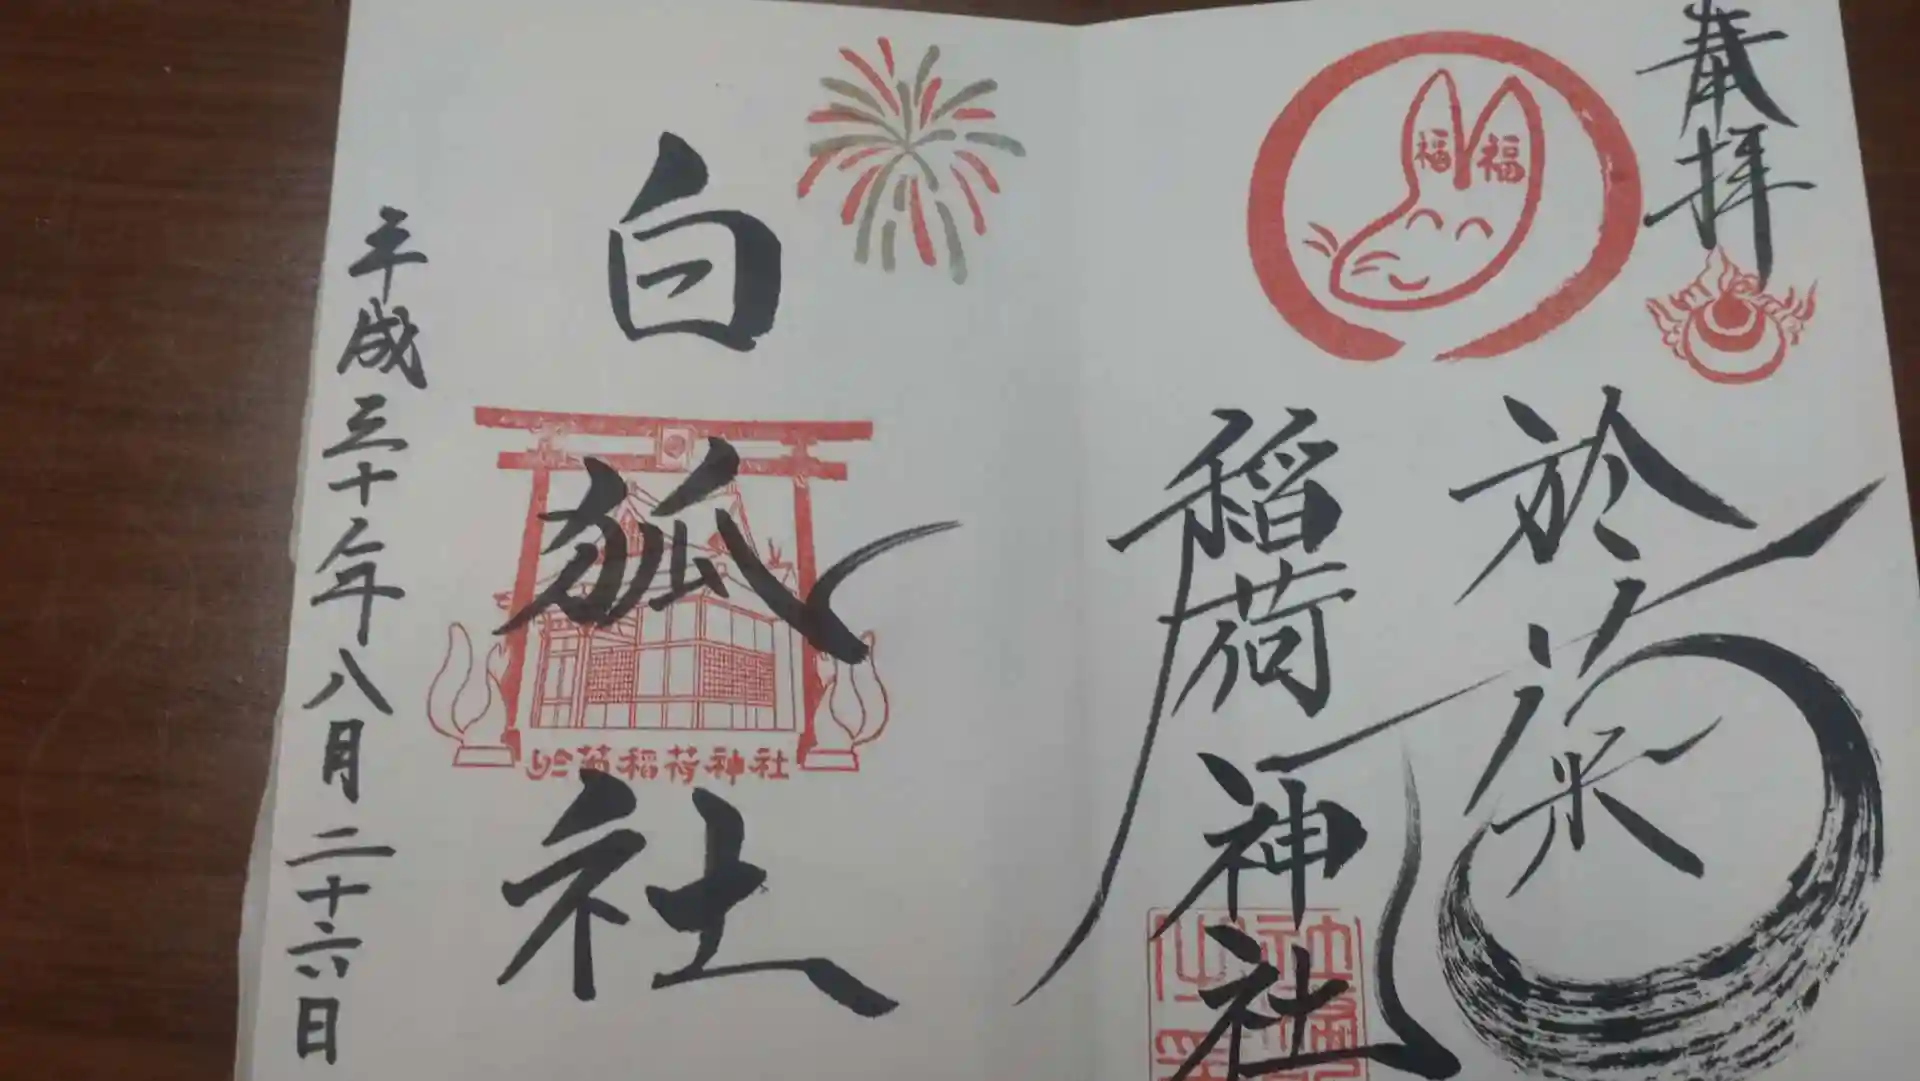 奉拝
福福
於菊
稲荷神社
白狐社
於菊稲荷神社
平成三十年八月二十六日